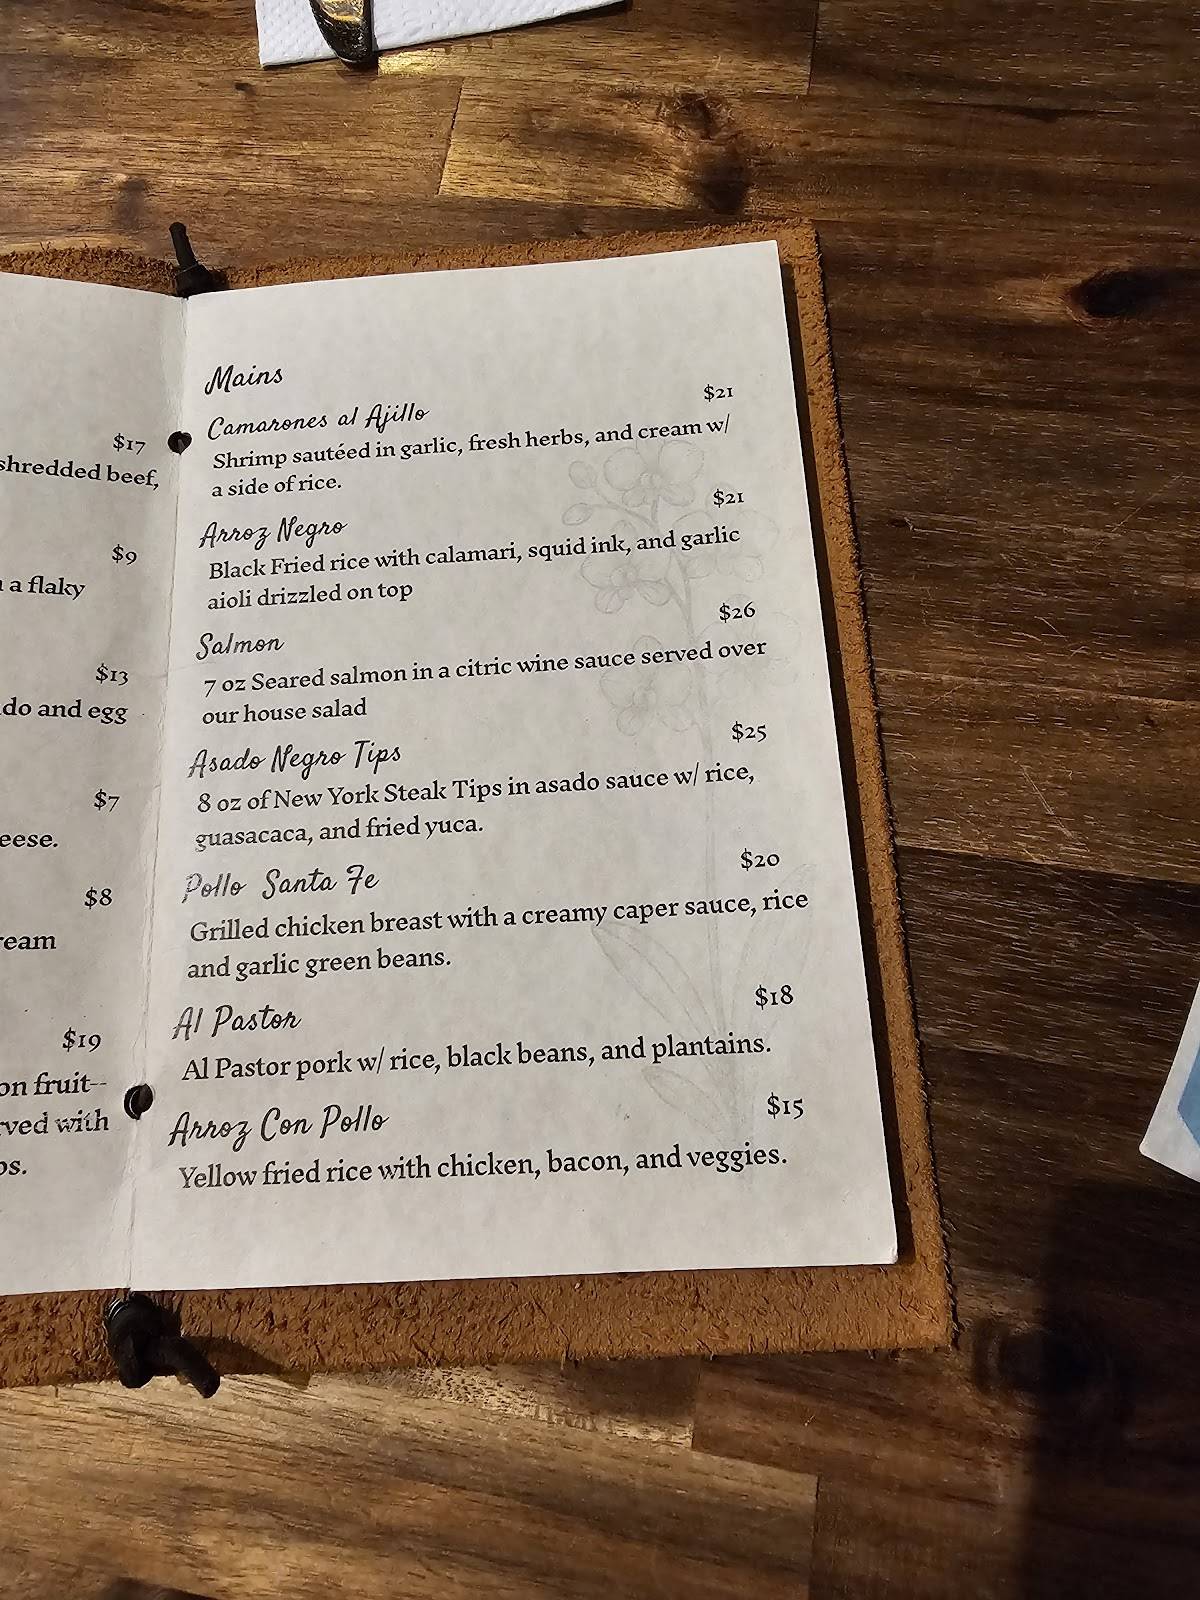 $17
shredded beef,
$9
a flaky
$13
do and egg
$7
eese.
$8
ream
$19
on fruit--
ved with
os.
Mains
Camarones al Ajillo $21
Shrimp sautéed in garlic, fresh herbs, and cream w/
a side of rice.
Arroz Negro $21
Black Fried rice with calamari, squid ink, and garlic
aioli drizzled on top
Salmon $26
7 oz Seared salmon in a citric wine sauce served over
our house salad
Asado Negro Tips $25
8 oz of New York Steak Tips in asado sauce w/ rice,
guasacaca, and fried yuca.
Pollo Santa Fe $20
Grilled chicken breast with a creamy caper sauce, rice
and garlic green beans.
Al Pastor $18
Al Pastor pork w/ rice, black beans, and plantains.
Arroz Con Pollo $15
Yellow fried rice with chicken, bacon, and veggies.